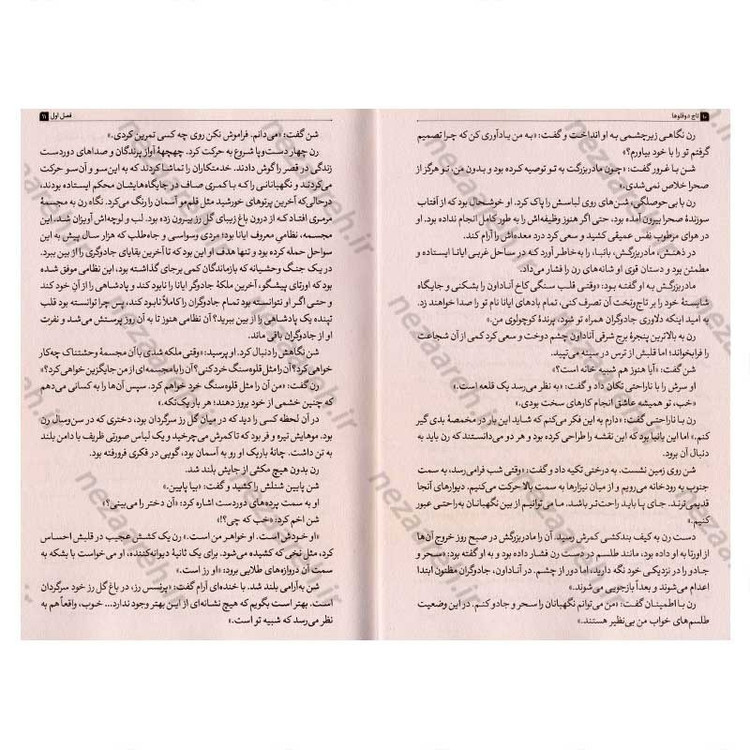 ۱۰ تاج دوقلوها
رن نگاهی زیرچشمی به او انداخت و گفت: «به من یادآوری کن که چرا تصمیم
گرفتم تو را با خود بیاورم؟»
شن با غرور گفت: «چون مادربزرگت به تو توصیه کرده بود و بدون من، تو هرگز از
صحرا خلاص نمی‌شدی.»
رن با بی‌حوصلگی، شن‌های روی لباسش را پاک کرد. او خوشحال بود که از آفتاب
سوزندهٔ صحرا بیرون آمده بود. حتی اگر هنوز وظیفه‌اش را به طور کامل انجام نداده بود. او
در هوای مرطوب نفس عمیقی کشید و سعی کرد درد معده‌اش را آرام کند.
در ذهنش، مادربزرگش، بانبا، را به‌خاطر آورد که در ساحل غربی ایانا ایستاده و
مطمئن بود و دستان قوی او شانه‌های رن را فشار می‌داد.
مادربزرگش به او گفته بود: «وقتی قلب سنگی کاخ آناداون را بشکنی و جایگاه
شایستهٔ خود را بر تاج‌وتخت آن تصرف کنی، تمام بادهای ایانا نام تو را صدا خواهند زد.
به امید اینکه دلاوری جادوگران همراه تو شود، پرندهٔ کوچولوی من.»
رن به بالاترین پنجرهٔ برج شرقی آناداون چشم دوخت و سعی کرد کمی از آن شجاعت
را فرابخواند؛ اما قلبش از ترس در سینه می‌تپید.
شن گفت: «آیا هنوز هم شبیه خانه است؟»
او سرش را با ناراحتی تکان داد و گفت: «به نظر می‌رسد یک قلعه است.»
«خب، تو همیشه عاشق انجام کارهای سخت بودی.»
رن با ناراحتی گفت: «دارم به این فکر می‌کنم که شاید این بار در مخمصهٔ بدی گیر
کنم.» اما این بانبا بود که این نقشه را طراحی کرده بود و هر دو می‌دانستند که رن باید به
دنبال آن برود.
شن روی زمین نشست. به درختی تکیه داد و گفت: «وقتی شب فرامی‌رسد، به سمت
جنوب به رودخانه می‌رویم و از میان نیزارها به سمت بالا حرکت می‌کنیم. دیوارهای آنجا
قدیمی‌ترند. جای پا باید راحت‌تر باشد. ما می‌توانیم از بین نگهبانان به‌راحتی عبور
کنیم.»
دست رن به کیف بندکشی کمرش رسید. آن را مادربزرگش در صبح روز خروج آن‌ها
از اورتا به او داده بود، مانند طلسم در دست رن فشار داده بود و به او گفته بود: «سحر و
جادو را در نزدیکی خود نگه دارید، اما دور از چشم. در آناداون، جادوگران مظنون ابتدا
اعدام می‌شوند و بعداً بازجویی می‌شوند.»
رن با اطمینان گفت: «من می‌توانم نگهبانان را سحر و جادو کنم. در این وضعیت
طلسم‌های خواب من بی‌نظیر هستند.»
فصل اول ۱۱
شن گفت: «می‌دانم. فراموش نکن روی چه کسی تمرین کردی.»
رن چهار دست‌وپا شروع به حرکت کرد. چهچههٔ آواز پرندگان و صداهای دوردست
زندگی در قصر را گوش دادند. خدمتکاران را تماشا کردند که به این‌سو و آن‌سو حرکت
می‌کردند و نگهبانانی را که با کمری صاف در جایگاه‌هایشان محکم ایستاده بودند،
درحالی‌که آخرین پرتوهای خورشید مثل قلم‌مو آسمان را رنگ می‌کرد. نگاه رن به مجسمهٔ
مرمری افتاد که از درون باغ زیبای گل رز بیرون زده بود. لب و لوچه‌اش آویزان شد. این
مجسمه، نظامی معروف ایانا بود؛ مردی وسواسی و جاه‌طلب که هزار سال پیش به این
سواحل حمله کرده بود و تنها هدف او این بود که تا آخرین بقایای جادوگری را از بین ببرد.
در یک جنگ وحشیانه که بازماندگان کمی برجای گذاشته بود، این نظامی موفق شده
بود که اورتای پیشگو، آخرین ملکهٔ جادوگر ایانا را نابود کند و پادشاهی را از آن خود کند
و حتی اگر او نتوانسته بود تمام جادوگران را کاملاً نابود کند، پس چرا توانسته بود قلب
تپنده یک پادشاهی را از بین ببرد؟ آن نظامی هنوز تا به آن روز پرستش می‌شد و نفرت
او از جادوگران باقی ماند.
شن نگاهش را دنبال کرد. او پرسید: «وقتی ملکه شدی با آن مجسمه وحشتناک چه‌کار
خواهی کرد؟ آن را مثل قلوه‌سنگ خرد کنی؟ آن را با مجسمه ای از من جایگزین خواهی کرد؟»
رن گفت: «من آن را مثل قلوه‌سنگ خرد خواهم کرد. سپس آن‌ها را به کسانی می‌دهم
که چنین خشمی از خود بروز دهند؛ هر بار یک‌تکه.»
در آن لحظه کسی را دید که در میان گل رز سرگردان بود، دختری که در سن‌وسال رن
بود. موهایش تیره و فر بود که تا کمرش می‌چرخید و یک لباس صورتی ظریف با دامن بلند
به تن داشت. چانهٔ باریک او رو به آسمان بود، گویی در فکری فرورفته بود.
رن بدون هیچ مکثی از جایش بلند شد.
شن پایین شنلش را کشید و گفت: «بیا پایین.»
او به سمت پرده‌های دوردست اشاره کرد: «آن دختر را می‌بینی؟»
شن اخم کرد: «خب که چی؟!»
«او خودش است. او خواهر من است.» رن یک کشش عجیب در قلبش احساس
کرد، مثل نخی که کشیده می‌شود. برای یک ثانیهٔ دیوانه‌کننده، او می‌خواست با بشکه به
سمت آن دروازه‌های طلایی برود: «او رز است.»
شن به‌آرامی بلند شد. با خنده‌ای آرام گفت: «پرنسس رز، در باغ گل رز خود سرگردان
است. بهتر است بگویم که هیچ نشانه‌ای از این بهتر وجود ندارد... خوب، واقعاً هم به
نظر می‌رسد که شبیه تو است.»
nezaareh.ir